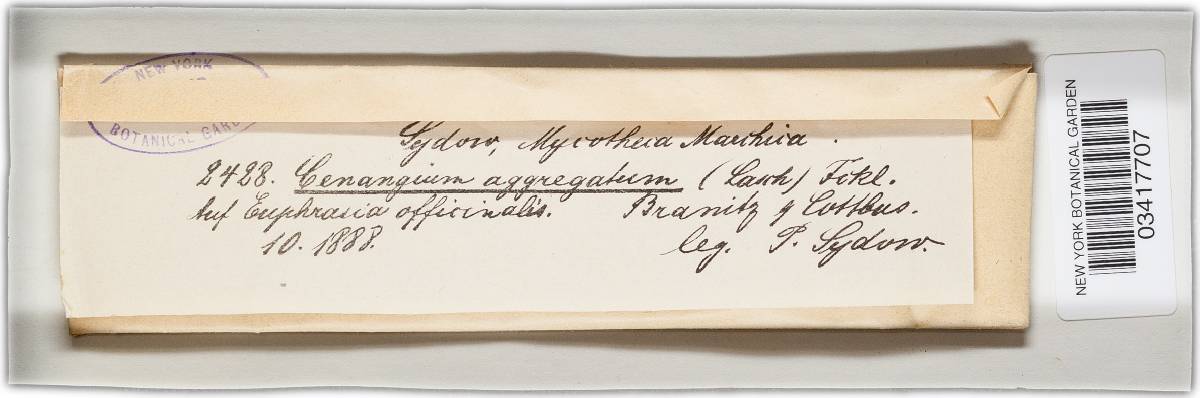 NEW YORK
BOTANICAL GARD
Sydow, Mycotheca Marchica.
2428. Cenangium aggregatum (Lasch) Fckl.
Auf Euphrasia officinalis. Branitz q Cottbus.
10. 1888. leg. P. Sydow.
NEW YORK BOTANICAL GARDEN
03417707